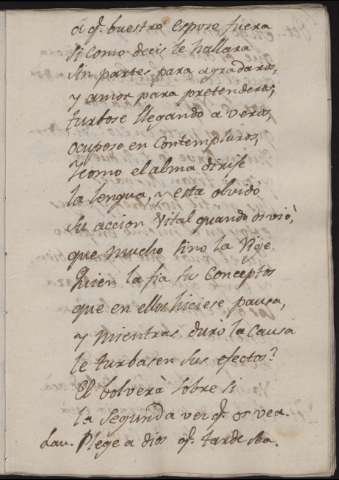 a q.̃ buestro esposo fuera
si como decis le hallara
sin partes para agradaros,
y amor para pretenderos;
turbose llegando a veros,
ocupose en contemplaros,
y como el alma dirise
la lengua, y esta olvidó
su accion vital quando os vió,
que mucho sino la rije.
Quien la fia sus Conceptos
que en ellos hiciese pausa,
y mientras duró la causa
le turbasen sus efectos?
El bolvera sobre si
la segunda vez q.̃ os vea.
Lau. Plege a dios q.̃ tarde sea.